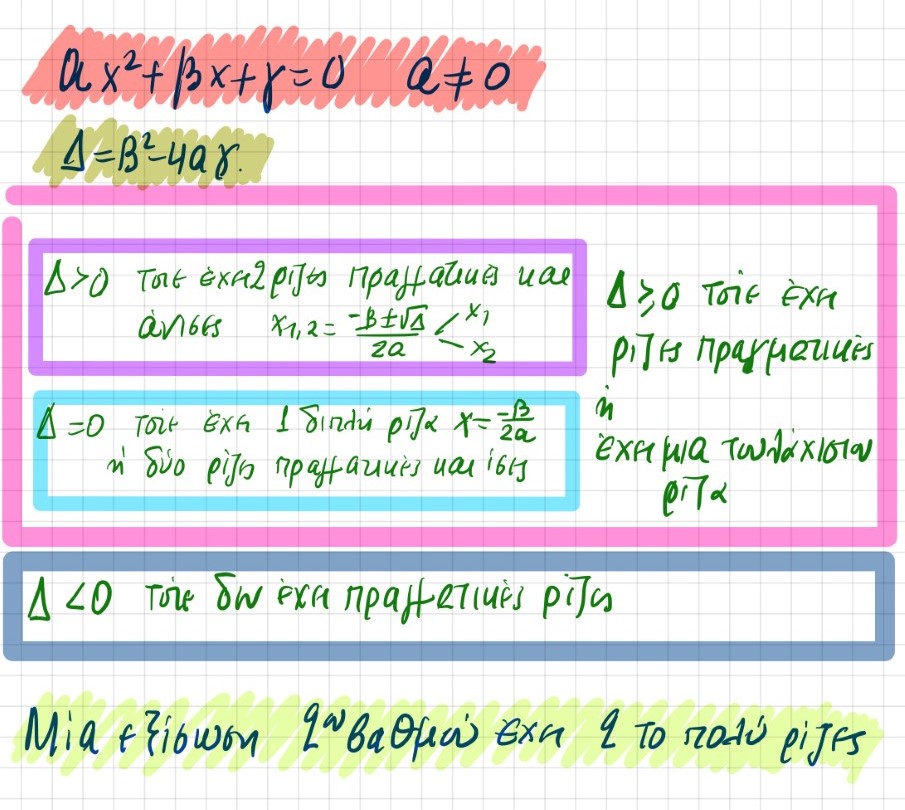 αx²+βx+γ=0 α≠0
Δ=β²-4αγ.
Δ>0 τότε έχει 2 ρίζες πραγματικές και
άνισες x₁,₂ = (-β±√Δ)/2α x₁ x₂
Δ=0 τότε έχει 1 διπλή ρίζα x=-β/2α
ή δύο ρίζες πραγματικές και ίσες
Δ≥0 τότε έχει
ρίζες πραγματικές
ή
έχει μια τουλάχιστον
ρίζα
Δ<0 τότε δεν έχει πραγματικές ρίζες
Μία εξίσωση 2ου βαθμού έχει 2 το πολύ ρίζες